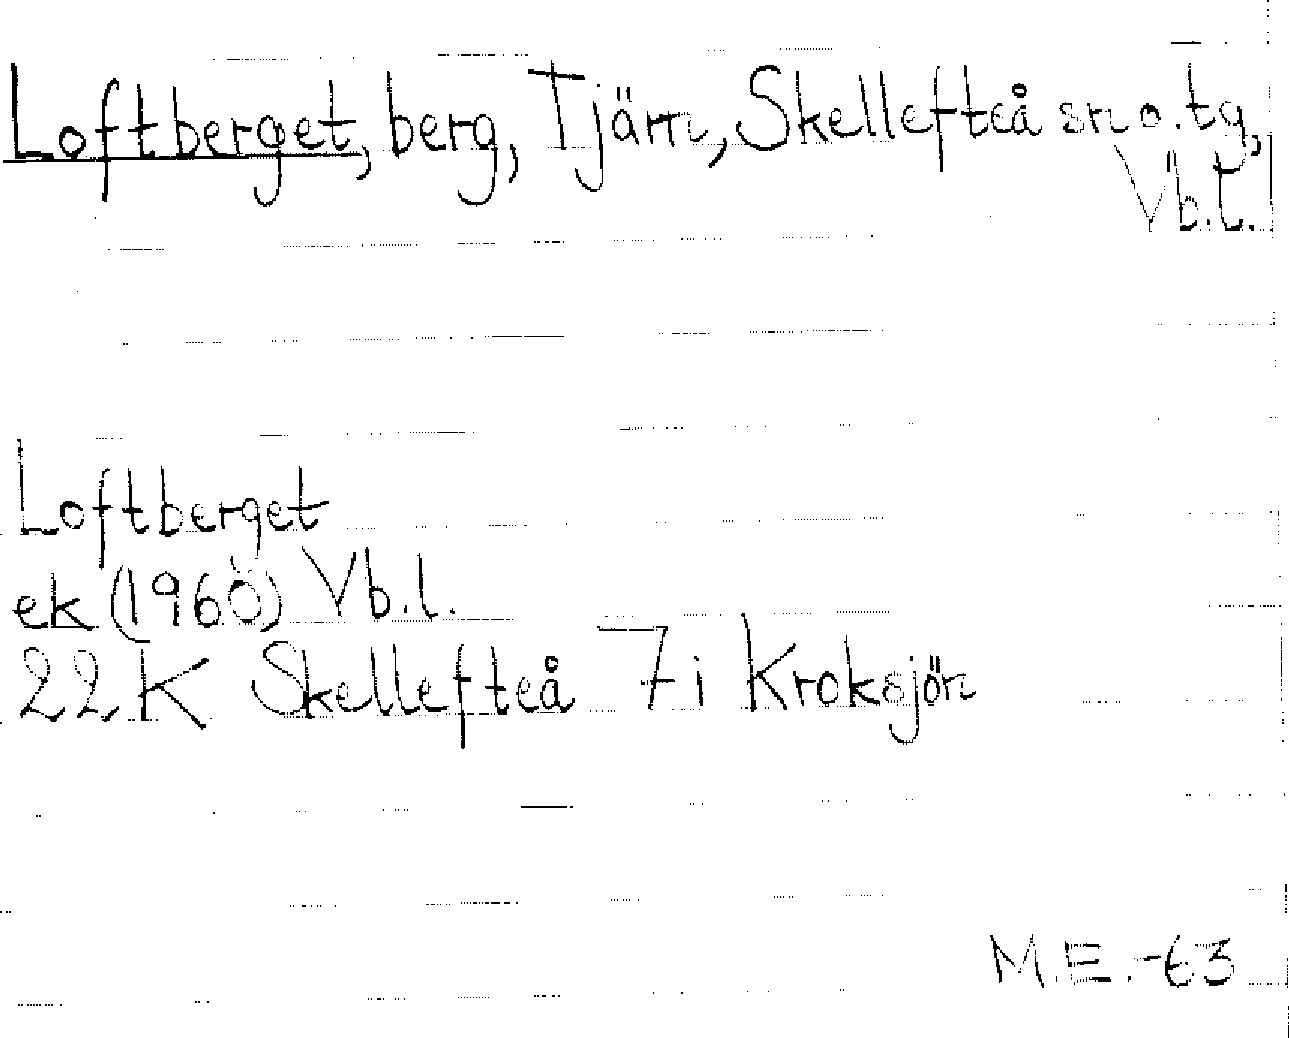 Loftberget, berg, Tjärn, Skellefteå sn o. tg,
Vb.l.
Loftberget
ek (1960) Vb.l.
22K Skellefteå 7i Kroksjön
M.E.-63